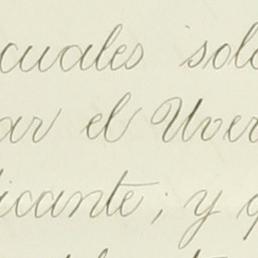 cuales solo
ar el Uver
icante; y q